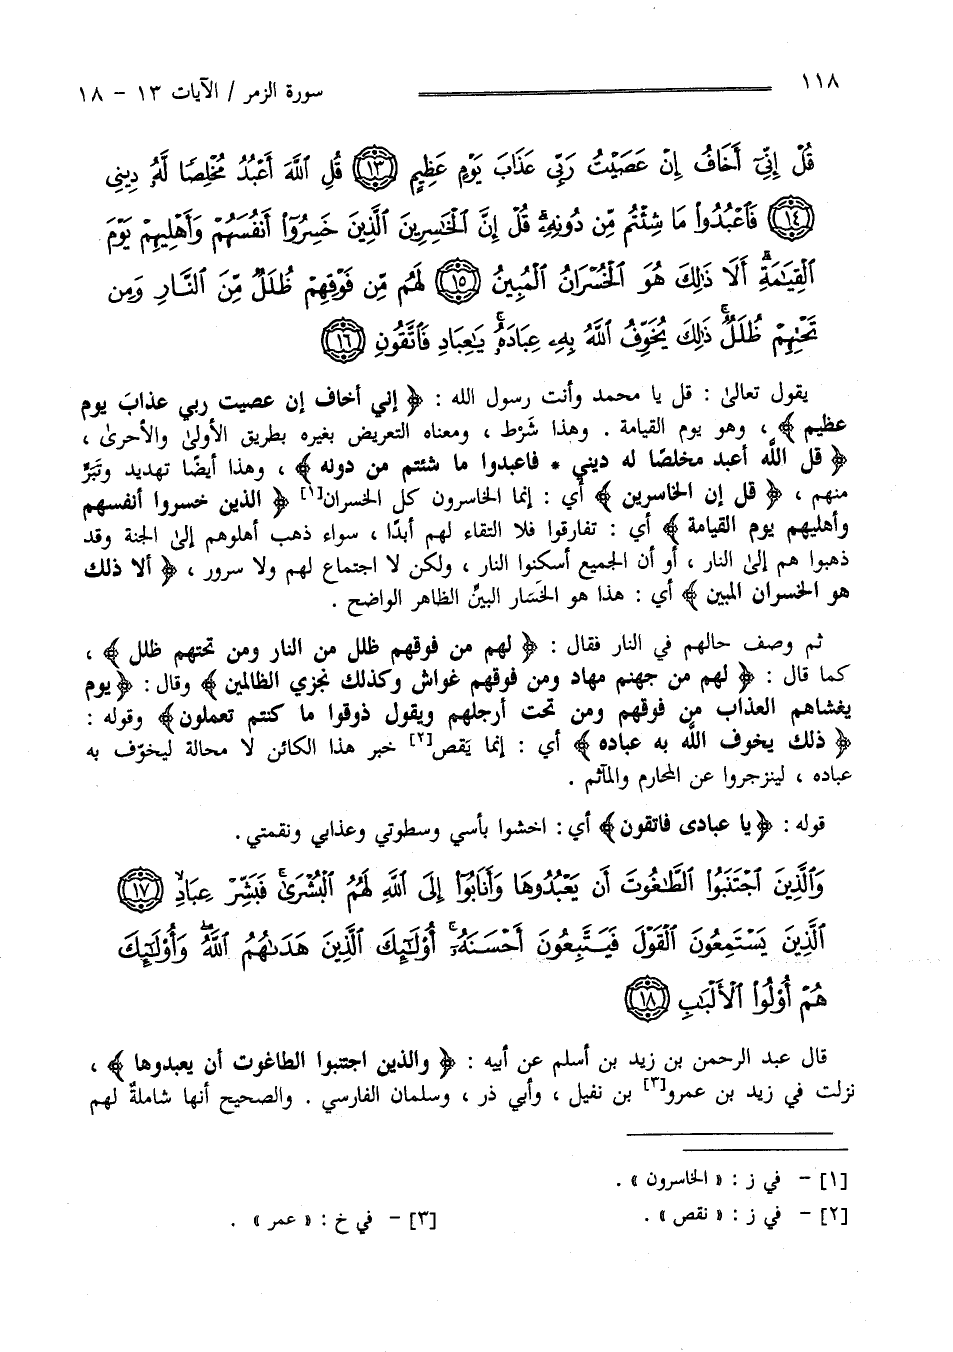 ١١٨ سورة الزمر / الآيات ١٣ - ١٨
قُلْ إِنِّىٓ أَخَافُ إِنْ عَصَيْتُ رَبِّى عَذَابَ يَوْمٍ عَظِيمٍ ﴿١٣﴾ قُلِ ٱللَّهَ أَعْبُدُ مُخْلِصًا لَّهُۥ دِينِى
﴿١٤﴾ فَٱعْبُدُوا۟ مَا شِئْتُم مِّن دُونِهِۦ ۗ قُلْ إِنَّ ٱلْخَـٰسِرِينَ ٱلَّذِينَ خَسِرُوٓا۟ أَنفُسَهُمْ وَأَهْلِيهِمْ يَوْمَ
ٱلْقِيَـٰمَةِ ۗ أَلَا ذَٰلِكَ هُوَ ٱلْخُسْرَانُ ٱلْمُبِينُ ﴿١٥﴾ لَهُم مِّن فَوْقِهِمْ ظُلَلٌ مِّنَ ٱلنَّارِ وَمِن
تَحْتِهِمْ ظُلَلٌ ۚ ذَٰلِكَ يُخَوِّفُ ٱللَّهُ بِهِۦ عِبَادَهُۥ ۚ يَـٰعِبَادِ فَٱتَّقُونِ ﴿١٦﴾
يقول تعالىٰ : قل يا محمد وأنت رسول الله : ﴿ إني أخاف إن عصيت ربي عذابَ يوم
عظيم ﴾ ، وهو يوم القيامة . وهذا شَرْط ، ومعناه التعريض بغيره بطريق الأولىٰ والأحرىٰ ،
﴿ قل اللَّه أعبد مخلصًا له ديني * فاعبدوا ما شئتم من دونه ﴾ ، وهذا أيضًا تهديد وتَبَرٍّ
منهم ، ﴿ قل إن الخاسرين ﴾ أي : إنما الخاسرون كل الخسران[١] ﴿ الذين خسروا أنفسهم
وأهليهم يوم القيامة ﴾ أي : تفارقوا فلا التقاء لهم أبدًا ، سواء ذهب أهلوهم إلىٰ الجنة وقد
ذهبوا هم إلىٰ النار ، أو أن الجميع أسكنوا النار ، ولكن لا اجتماع لهم ولا سرور ، ﴿ ألا ذلك
هو الخسران المبين ﴾ أي : هذا هو الخَسَار البينّ الظاهر الواضح .
ثم وصف حالهم في النار فقال : ﴿ لهم من فوقهم ظلل من النار ومن تحتهم ظلل ﴾ ،
كما قال : ﴿ لهم من جهنم مهاد ومن فوقهم غواش وكذلك نجزي الظالمين ﴾ وقال : ﴿ يوم
يغشاهم العذاب من فوقهم ومن تحت أرجلهم ويقول ذوقوا ما كنتم تعملون ﴾ وقوله :
﴿ ذلك يخوف اللَّه به عباده ﴾ أي : إنما يَقص[٢] خبر هذا الكائن لا محالة ليخوّف به
عباده ، لينزجروا عن المحارم والمآثم .
قوله : ﴿ يا عبادى فاتقون ﴾ أي : اخشوا بأسي وسطوتي وعذابي ونقمتي .
وَٱلَّذِينَ ٱجْتَنَبُوا۟ ٱلطَّـٰغُوتَ أَن يَعْبُدُوهَا وَأَنَابُوٓا۟ إِلَى ٱللَّهِ لَهُمُ ٱلْبُشْرَىٰ ۚ فَبَشِّرْ عِبَادِ ﴿١٧﴾
ٱلَّذِينَ يَسْتَمِعُونَ ٱلْقَوْلَ فَيَتَّبِعُونَ أَحْسَنَهُۥٓ ۚ أُو۟لَـٰٓئِكَ ٱلَّذِينَ هَدَىٰهُمُ ٱللَّهُ ۖ وَأُو۟لَـٰٓئِكَ
هُمْ أُو۟لُوا۟ ٱلْأَلْبَـٰبِ ﴿١٨﴾
قال عبد الرحمن بن زيد بن أسلم عن أبيه : ﴿ والذين اجتنبوا الطاغوت أن يعبدوها ﴾ ،
نزلت في زيد بن عمرو[٣] بن نفيل ، وأبي ذر ، وسلمان الفارسي . والصحيح أنها شاملةٌ لهم
[١] - في ز : « الخاسرون » .
[٢] - في ز : « نقص » . [٣] - في خ : « عمر » .